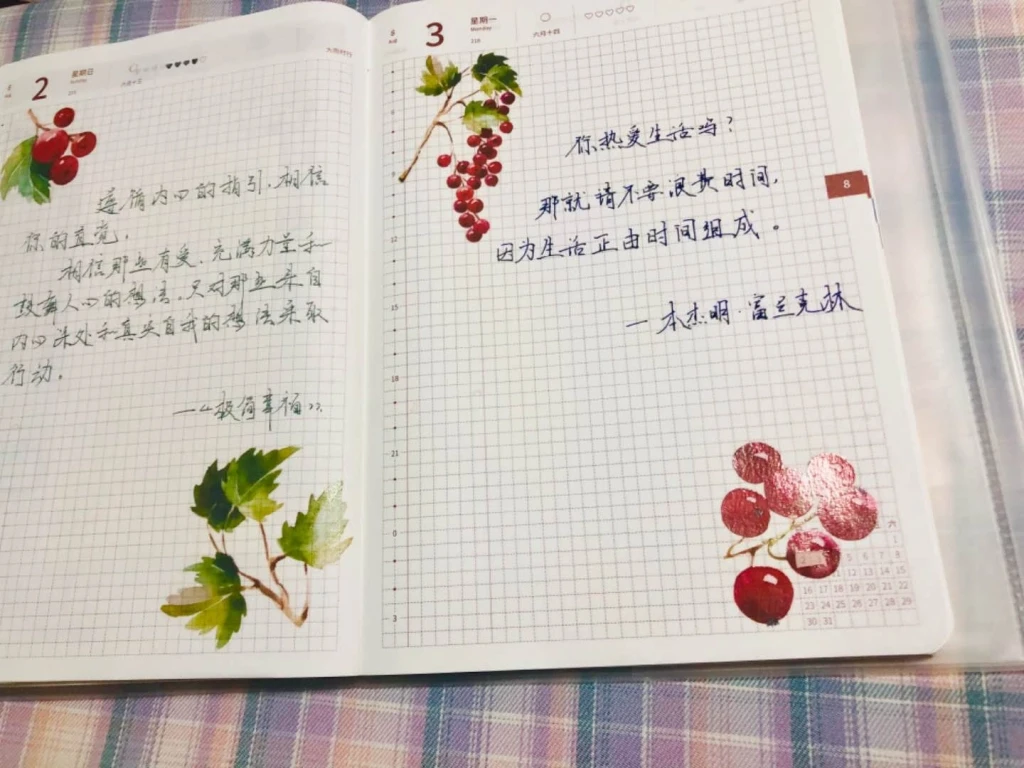 2
星期日
Sunday
遵循内心的指引,相信
你的直觉,
相信那些有爱、充满力量和
鼓舞人心的想法,只对那些来自
内心深处和真实自我的想法采取
行动。
—《极简幸福》
3
星期一
Monday
216
六月十四
你热爱生活吗?
那就请不要浪费时间,
因为生活正由时间组成。
—本杰明·富兰克林
8
9
12
15
18
21
0
3
六
1
5 6 7 8
11 12 13 14 15
16 17 18 19 20 21 22
23 24 25 26 27 28 29
30 31